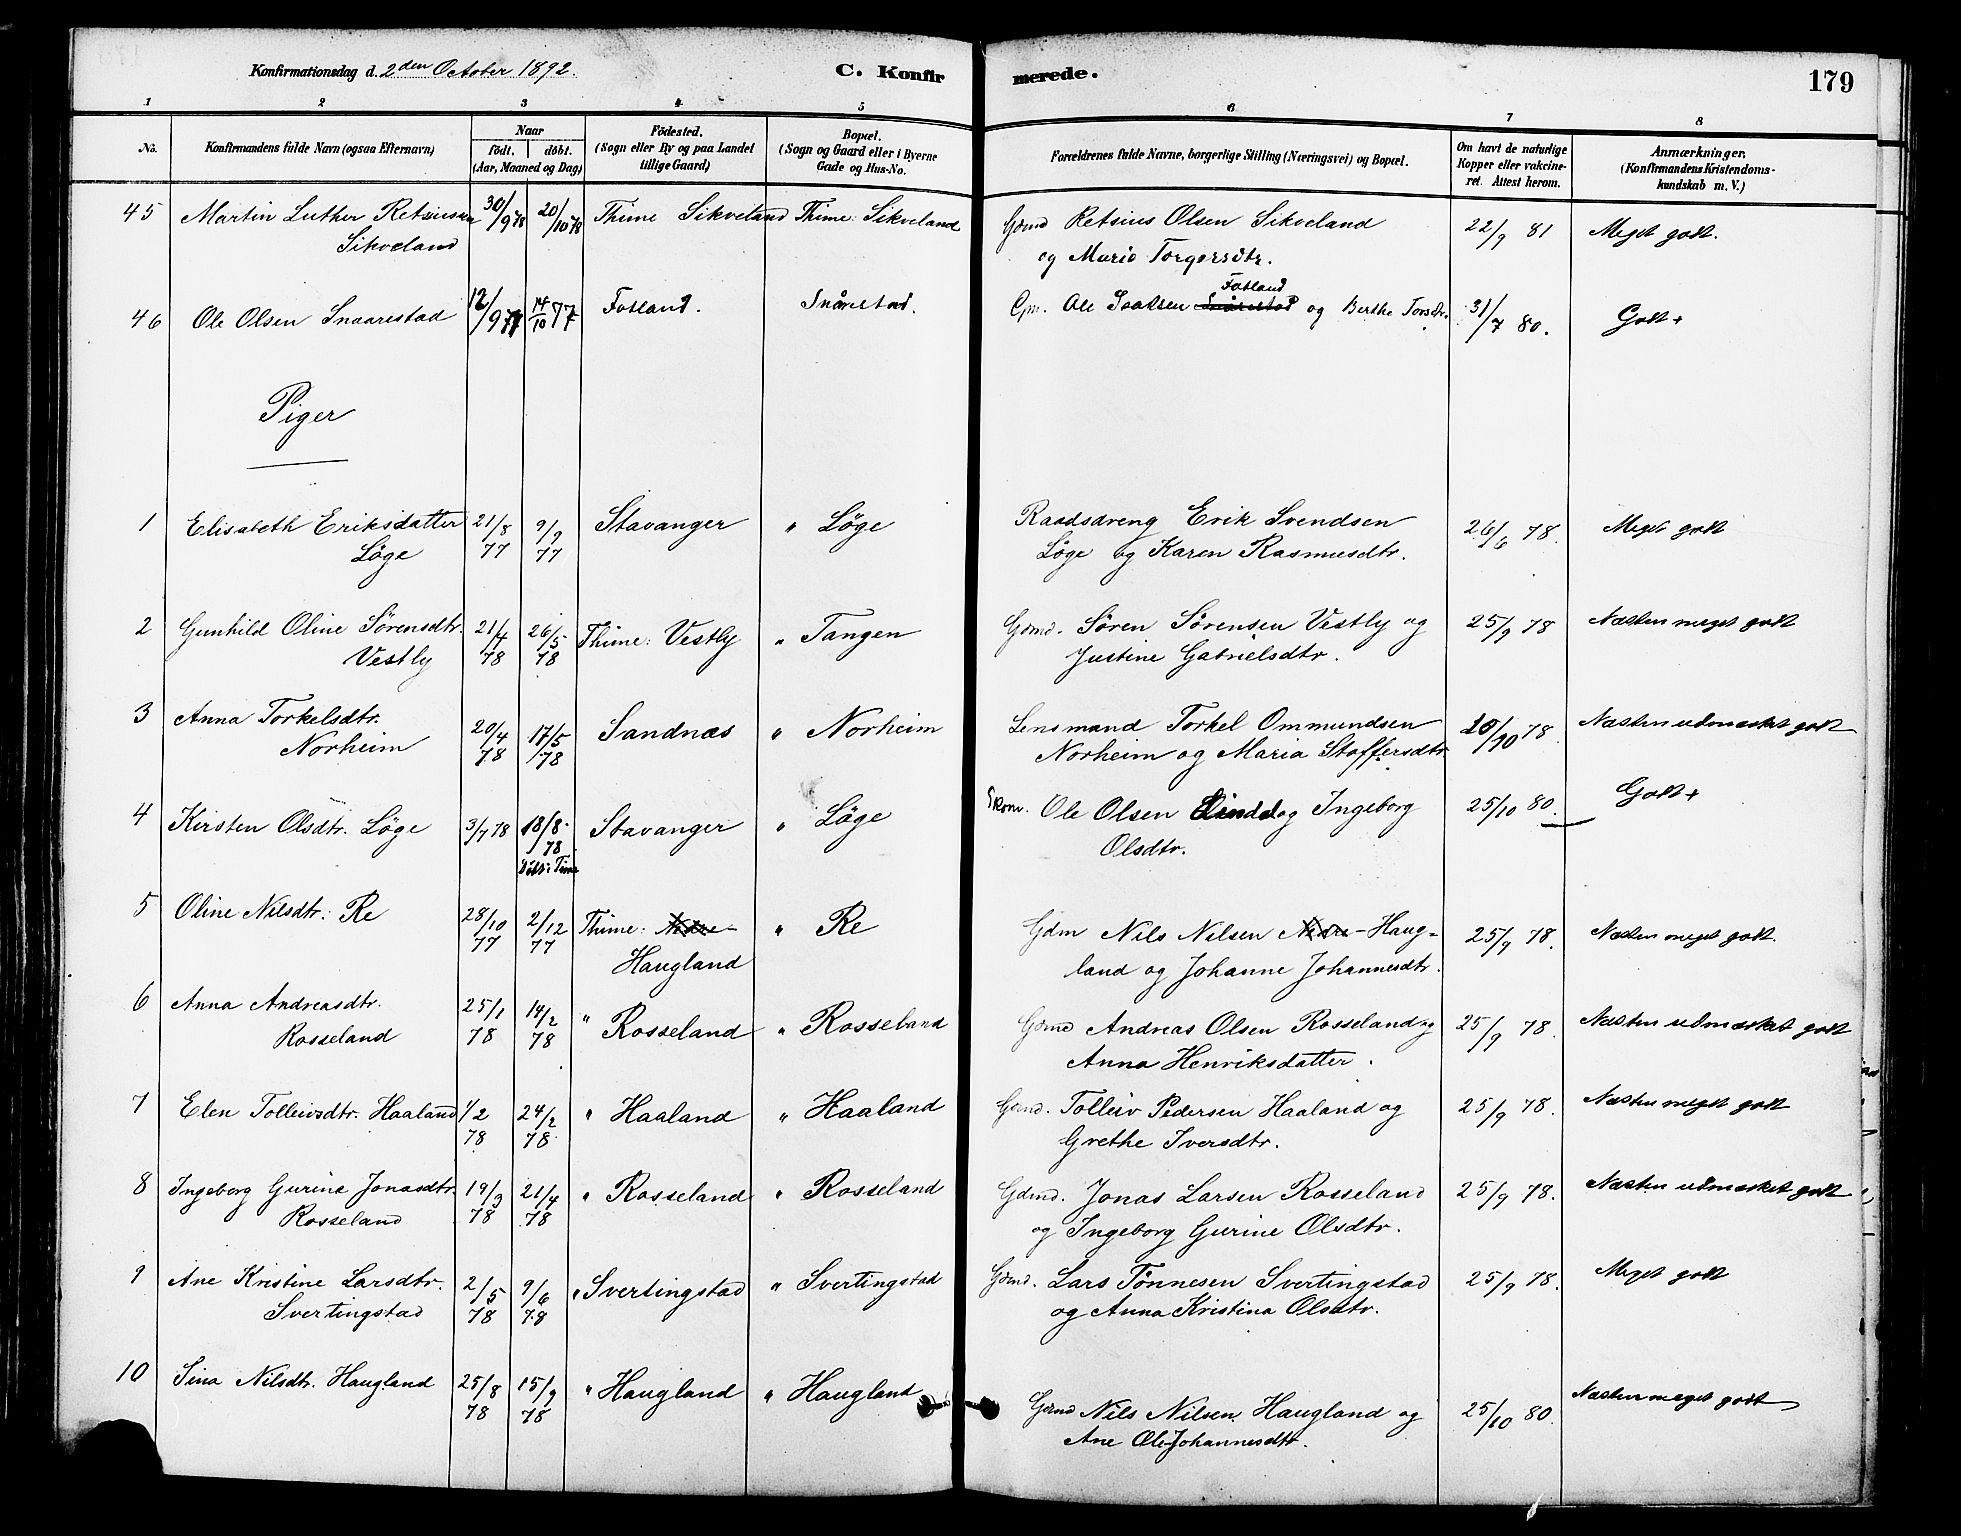 Konfirmationsdag d. 2den October 1892. C. Konfirmerede. 179
1 2 3 4 5 6 7 8
No. Konfirmandens fulde Navn (ogsaa Efternavn) Naar födt. döbt. (Aar, Maaned og Dag) Födested. (Sogn eller By og paa Landet tillige Gaard) Bopæl. (Sogn og Gaard eller i Byerne Gade og Hus-No. Forældrenes fulde Navne, borgerlige Stilling (Næringsvei) og Bopæl. Om havt de naturlige Kopper eller vakcineret. Attest herom. Anmærkninger, (Konfirmandens Kristendomskundskab m. V.)
45 Martin Luther Retsiussen 30/9 78 20/10 78 Thime Sikveland Thime: Sikveland Gdmd Retsius Olsen Sikveland 22/9 81 Meget godt.
Sikveland og Marie Torgersdtr.
Fotland
46 Ole Olsen Snaarestad 12/9 77 14/10 77 Fotland. Snårestad. Gm. Ole Isaksen Snårestad og Berthe Torsdtr. 31/7 80. Godt +
Piger
1 Elisabeth Eriksdatter 21/8 77 9/9 77 Stavanger " Löge Raadsdreng Erik Svendsen 26/6 78. Meget godt
Löge Löge og Karen Rasmusdtr.
2 Gunhild Oline Sörensdtr. 21/4 78 26/5 78 Thime: Vestly " Tangen Gdmd. Sören Sörensen Vestly og 25/9 78 Næsten meget godt
Vestly Justine Gabrielsdtr.
3 Anna Torkelsdtr. 20/4 78 17/5 78 Sandnæs " Norheim Lensmand Torkel Ommundsen 20/10 78. Næsten udmærket godt
Norheim Norheim og Maria Stoffersdtr.
4 Kirsten Olsdtr. Löge 3/7 78 18/8 78 Stavanger " Löge Skom. Ole Olsen Linddal og Ingeborg 25/10 80. Godt +
Döbt i Time Olsdtr.
5 Oline Nilsdtr. Re 28/10 77 2/12 77 Thime: Nedre- " Re Gdm Nils Nilsen Nedre-Haug- 25/9 78. Næsten meget godt.
Haugland land og Johanne Johannesdtr.
6 Anna Andreasdtr. 25/1 78 14/2 78 " Rosseland " Rosseland Gdmd Andreas Olsen Rosseland og 25/9 78. Næsten udmærket godt
Rosseland Anna Henriksdatter.
7 Elen Tolleivsdtr. Haaland 1/2 78 24/2 78 " Haaland " Haaland Gdmd. Tolleiv Pedersen Haaland og 25/9 78. Næsten meget godt
Grethe Iversdtr.
8 Ingeborg Gurine Jonasdtr. 19/3 78 21/4 78 " Rosseland " Rosseland Gdmd. Jonas Larsen Rosseland 25/9 78. Næsten udmærket godt
Rosseland og Ingeborg Gurine Olsdtr.
9 Ane Kristine Larsdtr. 2/5 78 9/6 78 " Svertingstad " Svertingstad Gdmd. Lars Tönnesen Svertingstad 25/9 78. Meget godt
Svertingstad og Anna Kristina Olsdtr.
10 Sina Nilsdtr. Haugland 25/8 78 15/9 78 " Haugland " Haugland Gdmd Nils Nilsen Haugland og 25/10 80. Næsten meget godt
Ane Ole-Johannesdtr.